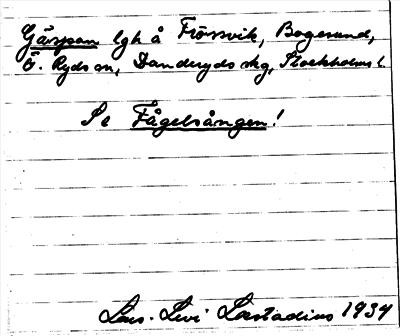 Gåxpan lgh å Frösvik, Bogesund,
Ö. Ryds sn, Danderyds skg, Stockholms l.
Se Fågelsången!
Lars-Levi Læstadius 1934